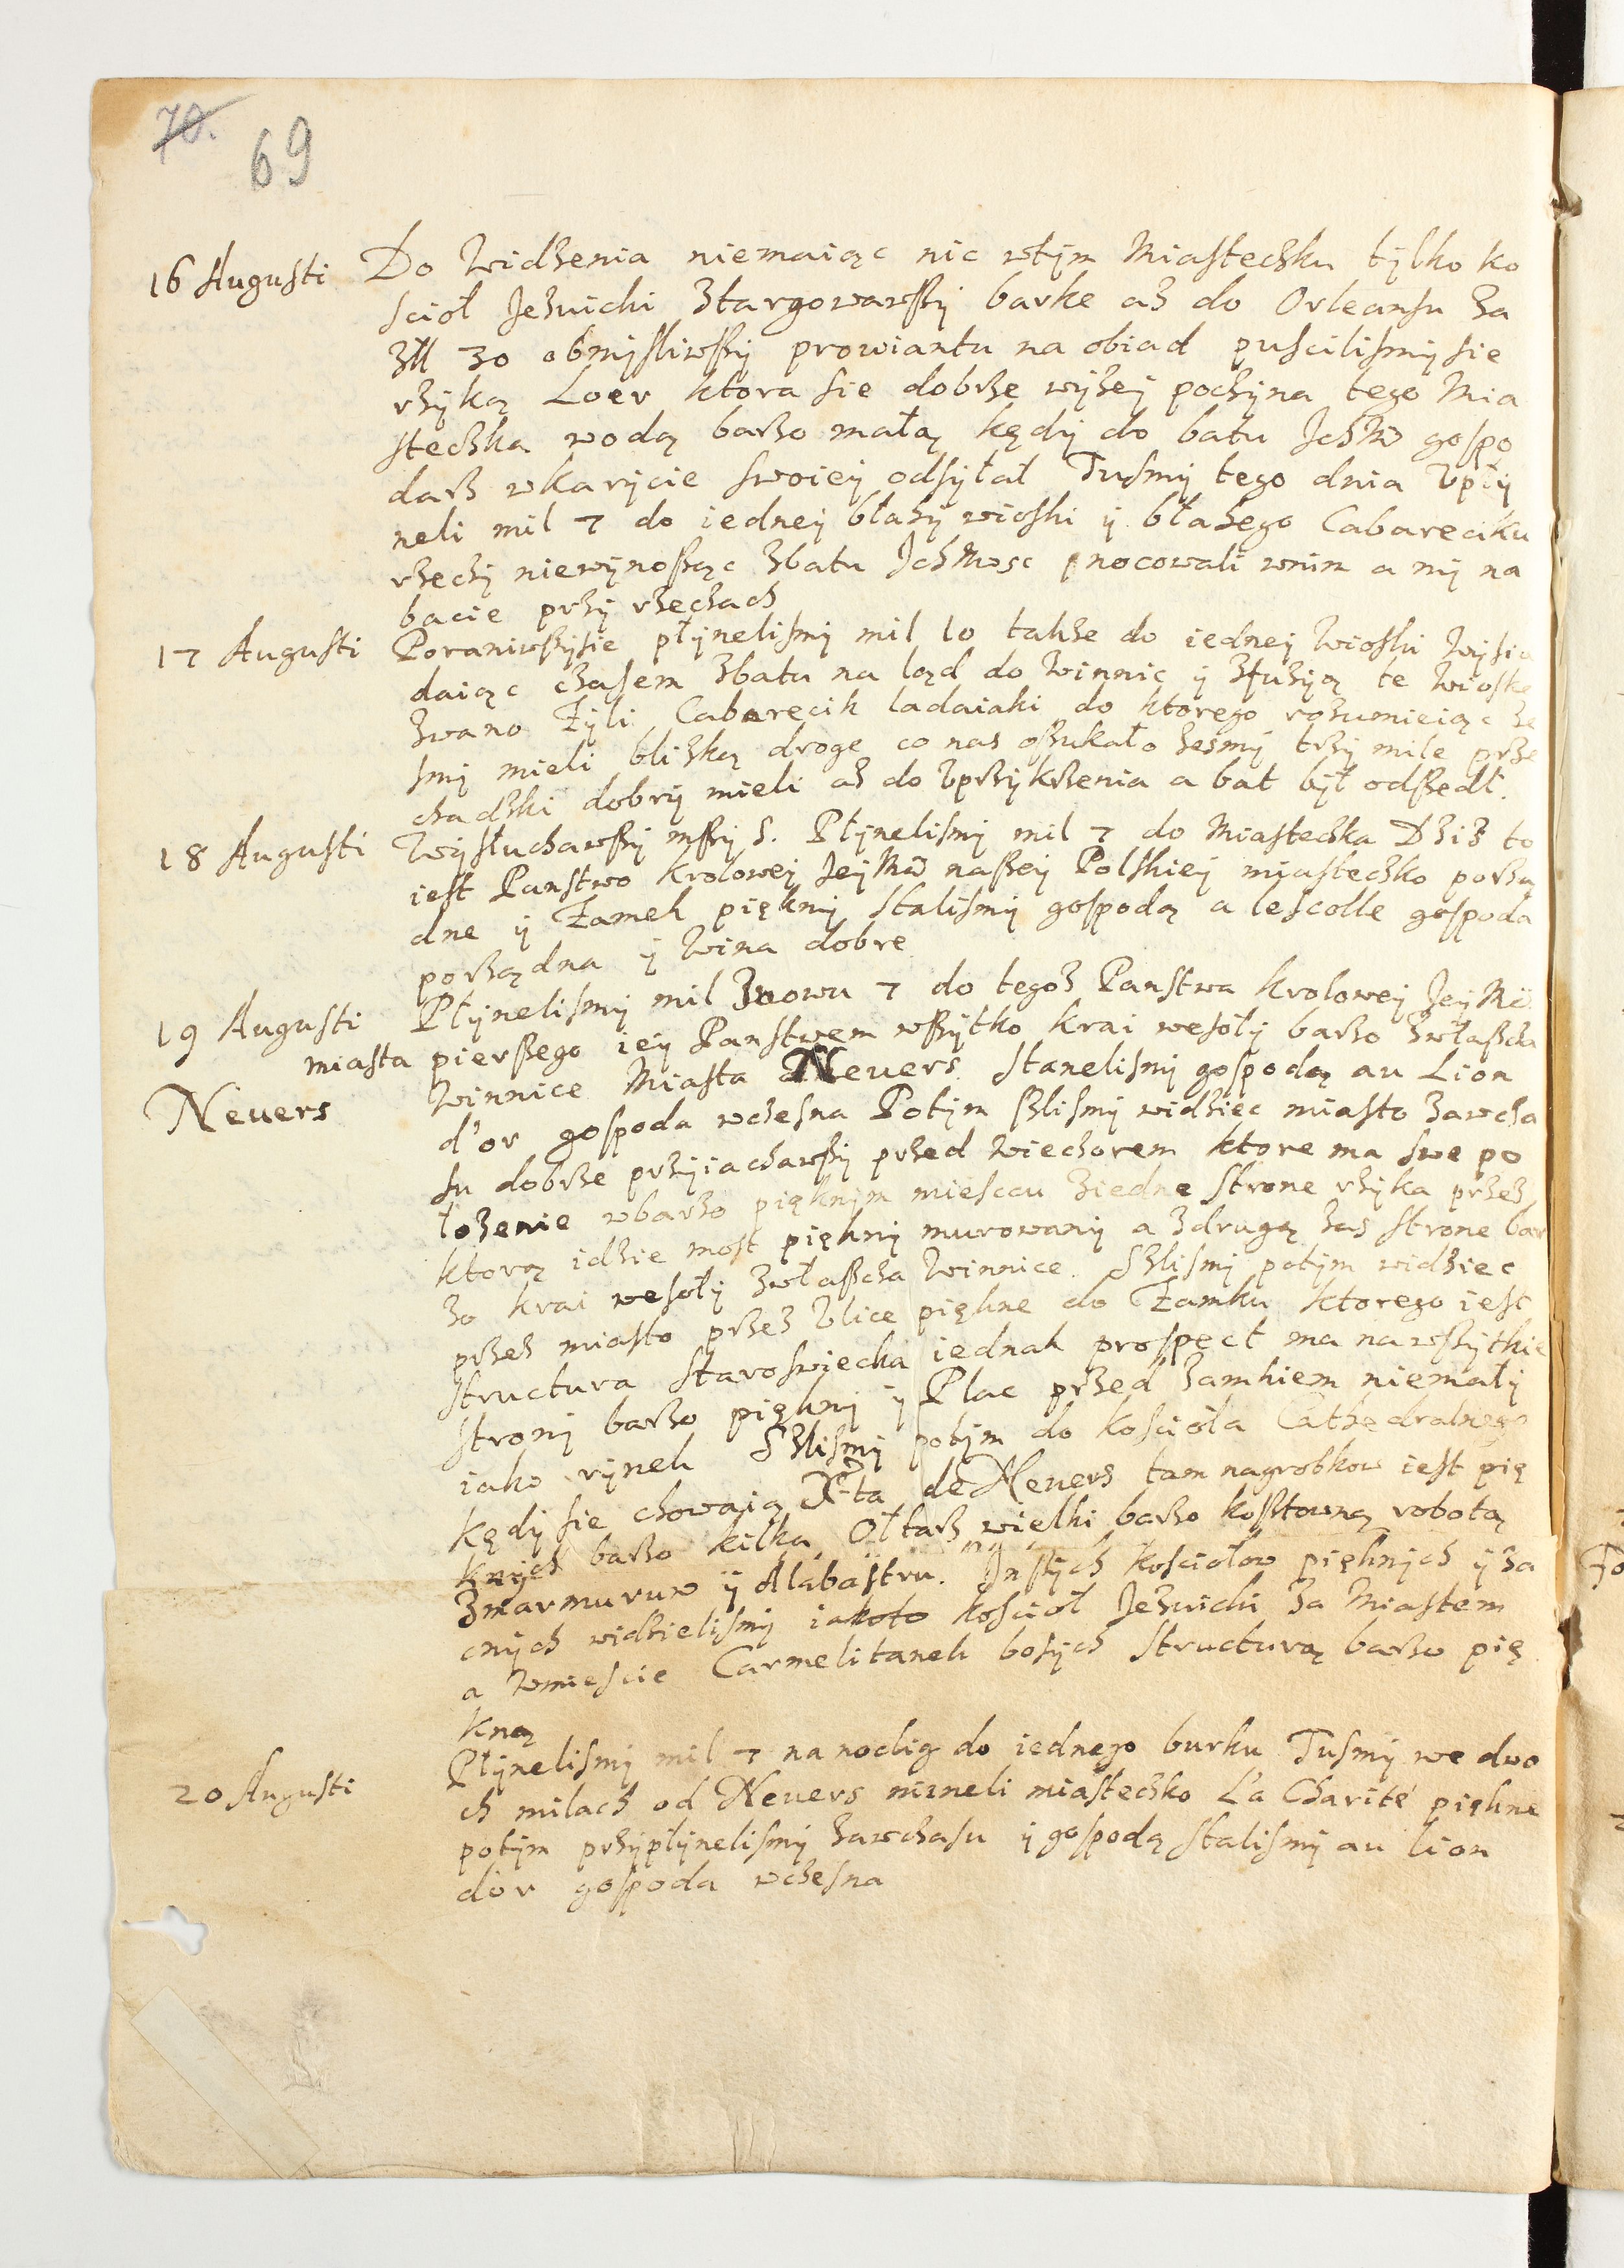 70.
69
16 Augusti Do Widzenia niemaiąc nic wtym Miasteczku tylko ko
scioł Jezuicki ztargowawszy barke asz do Orleansu za
zll 30 obmysliwszy prowiantu na obiad puscilismy sie
rzyką Loer ktora sie dobrze wyzey poczyna tego Mia
steczka wodą barzo małą kędy do batu Jchm gospo
darz wkarycie swoiey odsyłał Tusmy tego dnia Vpły
neli mil 7 do iedney błazy wioski y błazego Cabareciku
rzeczy niewynosząc zbatu Jchmosc nocowali wnim a my na
bacie przy rzeczach
17 Augusti Poraniwszysie płynelismy mil 10 takze do iedney Wioski Wysia
daiąc czasem zbatu na ląd do Winnic y te Wioske
zwano Zyli Cabarecik ladaiaki do ktorego rozumieiąc ze
smy mieli blizką droge co nas oszukało zesmy trzy mile prze
chadzki dobry mieli asz do Vprzykrzenia a bat był odszedł.
18 Augusti Wysłuchawszy mszy S. Płynelismy mil 7 do Miasteczka Dziz to
iest Panstwo Krolowey Jey Mci naszey Polskiey miasteczko porzą
dne y Zamek piękny Stalismy gospodą a lescolle gospoda
porządna y Wina dobre
19 Augusti Płynelismy mil Znowu 7 do tegosz Panstwa Krolowey Jey Mci
miasta pierszego iey Panstwem wszytko krai wesoły barzo zwłaszcza
Neuers Winnice Miasta Neuers Stanelismy gospodą au Lion
d'or gospoda wczesna Potym szlismy widziec miasto zawcza
su dobrze przyiachawszy przed Wieczorem ktore ma swe po
łozenie wbarzo pięknym miescu ziedne strone rzyka przez
ktorą idzie most piękny murowany a zdrugą zas strone bar
zo krai wesoły zwłaszcza Winnice. Szlismy potym widziec
przez miasto przez Vlice piękne do Zamku ktorego iest
structura staroswiecka iednak prospect ma na wszytkie
strony barzo piękny y Plac przed zamkiem niemały
iako rynek Szlismy potym do koscioła Cathedralnego
kędy sie chowaią X-ta de Neuers tam nagrobkow iest pię
knych barzo kilka Ołtarz wielki barzo kosztowną robotą
zmarmuruw y Alabastru. Jnszych kosciołow pięknych y za
cnych widzielismy iakoto kosciol Jezuicki za Miastem
a Wmiescie Carmelitanek bosych structurą barzo pię
kną
20 Augusti Płynelismy mil 7 na noclig do iednego burku Tusmy we dwo
ch milach od Neuers mineli miasteczko La Charité piękne
potym przypłynelismy zawczasu y gospodą stalismy au lion
dor gospoda wczesna